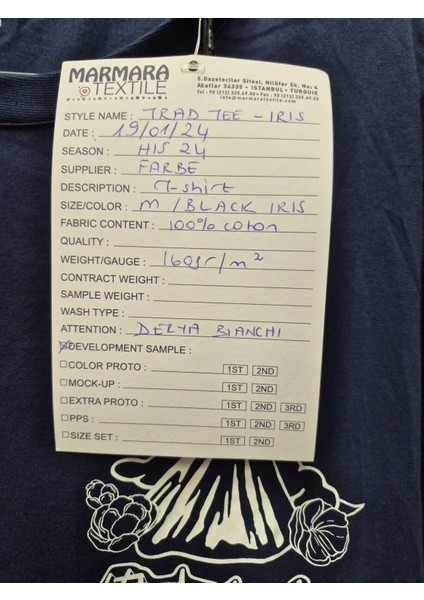 MARMARA
TEXTILE
S.Gazeteciler Sitesi, Nilüfer Sk. No: 4
Akatlar 34335 • İSTANBUL • TURQUIE
www.marmaratextile.com
STYLE NAME : TRAD TEE - IRIS
DATE : 19/01/24
SEASON : HIS 24
SUPPLIER : FARBE
DESCRIPTION : T-shirt
SIZE/COLOR : M / BLACK IRIS
FABRIC CONTENT : 100% coton
QUALITY :
WEIGHT/GAUGE : 160gr/m²
CONTRACT WEIGHT :
SAMPLE WEIGHT :
WASH TYPE :
ATTENTION : DERYA BIANCHI
DEVELOPMENT SAMPLE :
COLOR PROTO : 1ST 2ND
MOCK-UP : 1ST 2ND
EXTRA PROTO : 1ST 2ND 3RD
PPS : 1ST 2ND 3RD
SIZE SET : 1ST 2ND